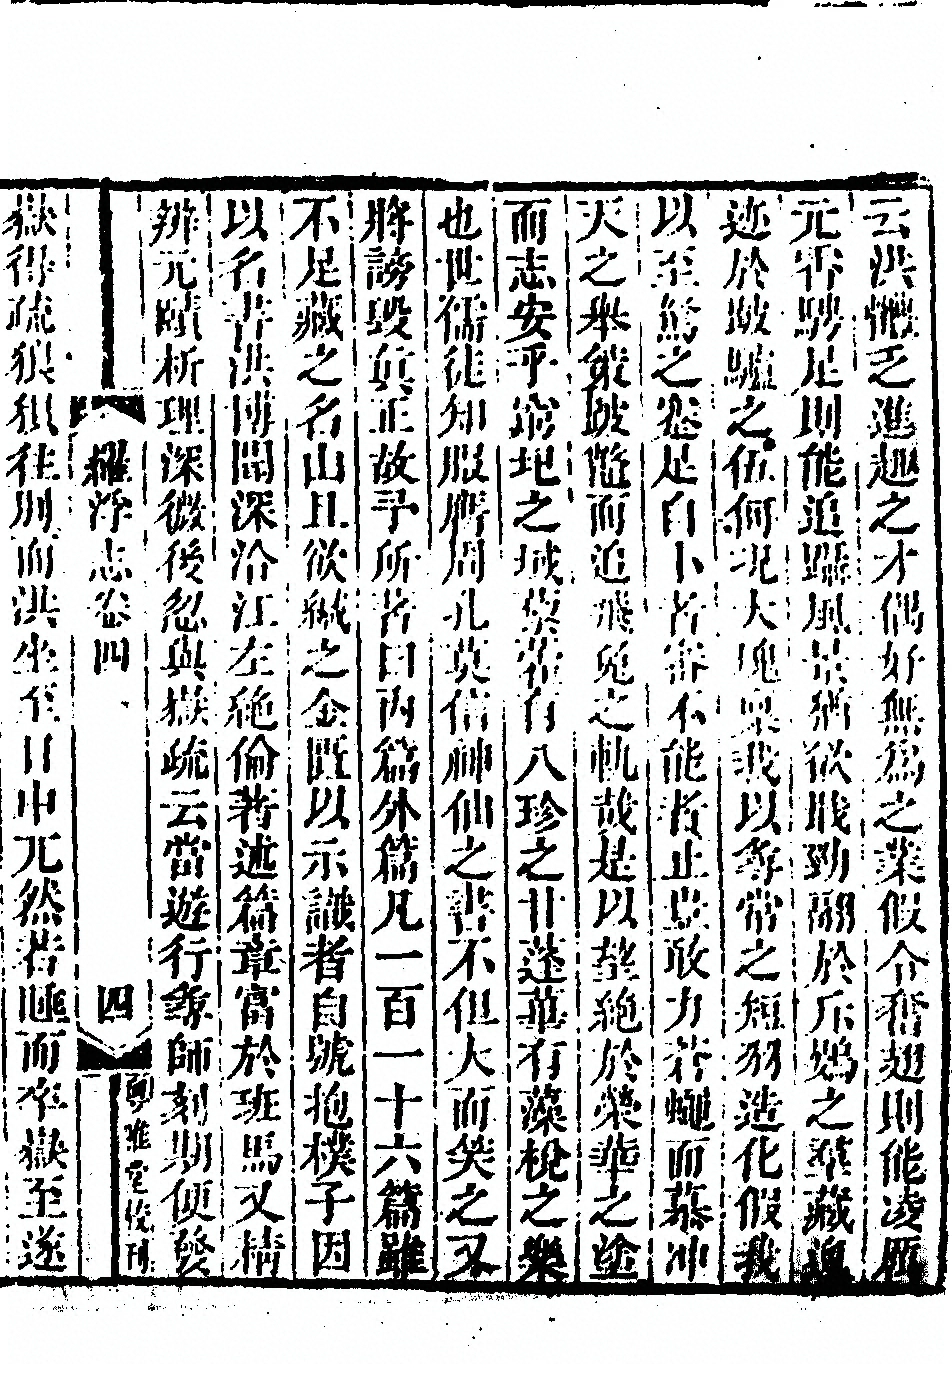 云洪體乏進趣之才偶好無爲之業假令奮翅則能凌厲
元霄騁足則能追蹑風景猶欲戢勁翮於斥鷃之羣藏逸
迹於跛驢之伍何况大塊稟我以尋常之短羽造化假我
以至駑之蹇足自卜者審不能者止豈敢力蒼蠅而慕冲
天之舉策跛鼈而追飛兔之軌哉是以望絕於榮華之塗
而志安乎窮圯之域藜藿有八珍之甘蓬蓽有藻梲之樂
也世儒徒知服膺周孔莫信神仙之書不但大而笑之又
將謗毀真正故予所著曰內篇外篇凡一百一十六篇雖
不足藏之名山且欲緘之金匱以示識者自號抱樸子因
以名書洪博聞深洽江左絕倫著述篇章富於班馬又精
辨元賾析理深微後忽與嶽疏云當遊行尋師刻期便發
羅浮志卷四
四
粤雅堂校刊
嶽得疏狼狽往別而洪坐至日中兀然若睡而卒嶽至遂